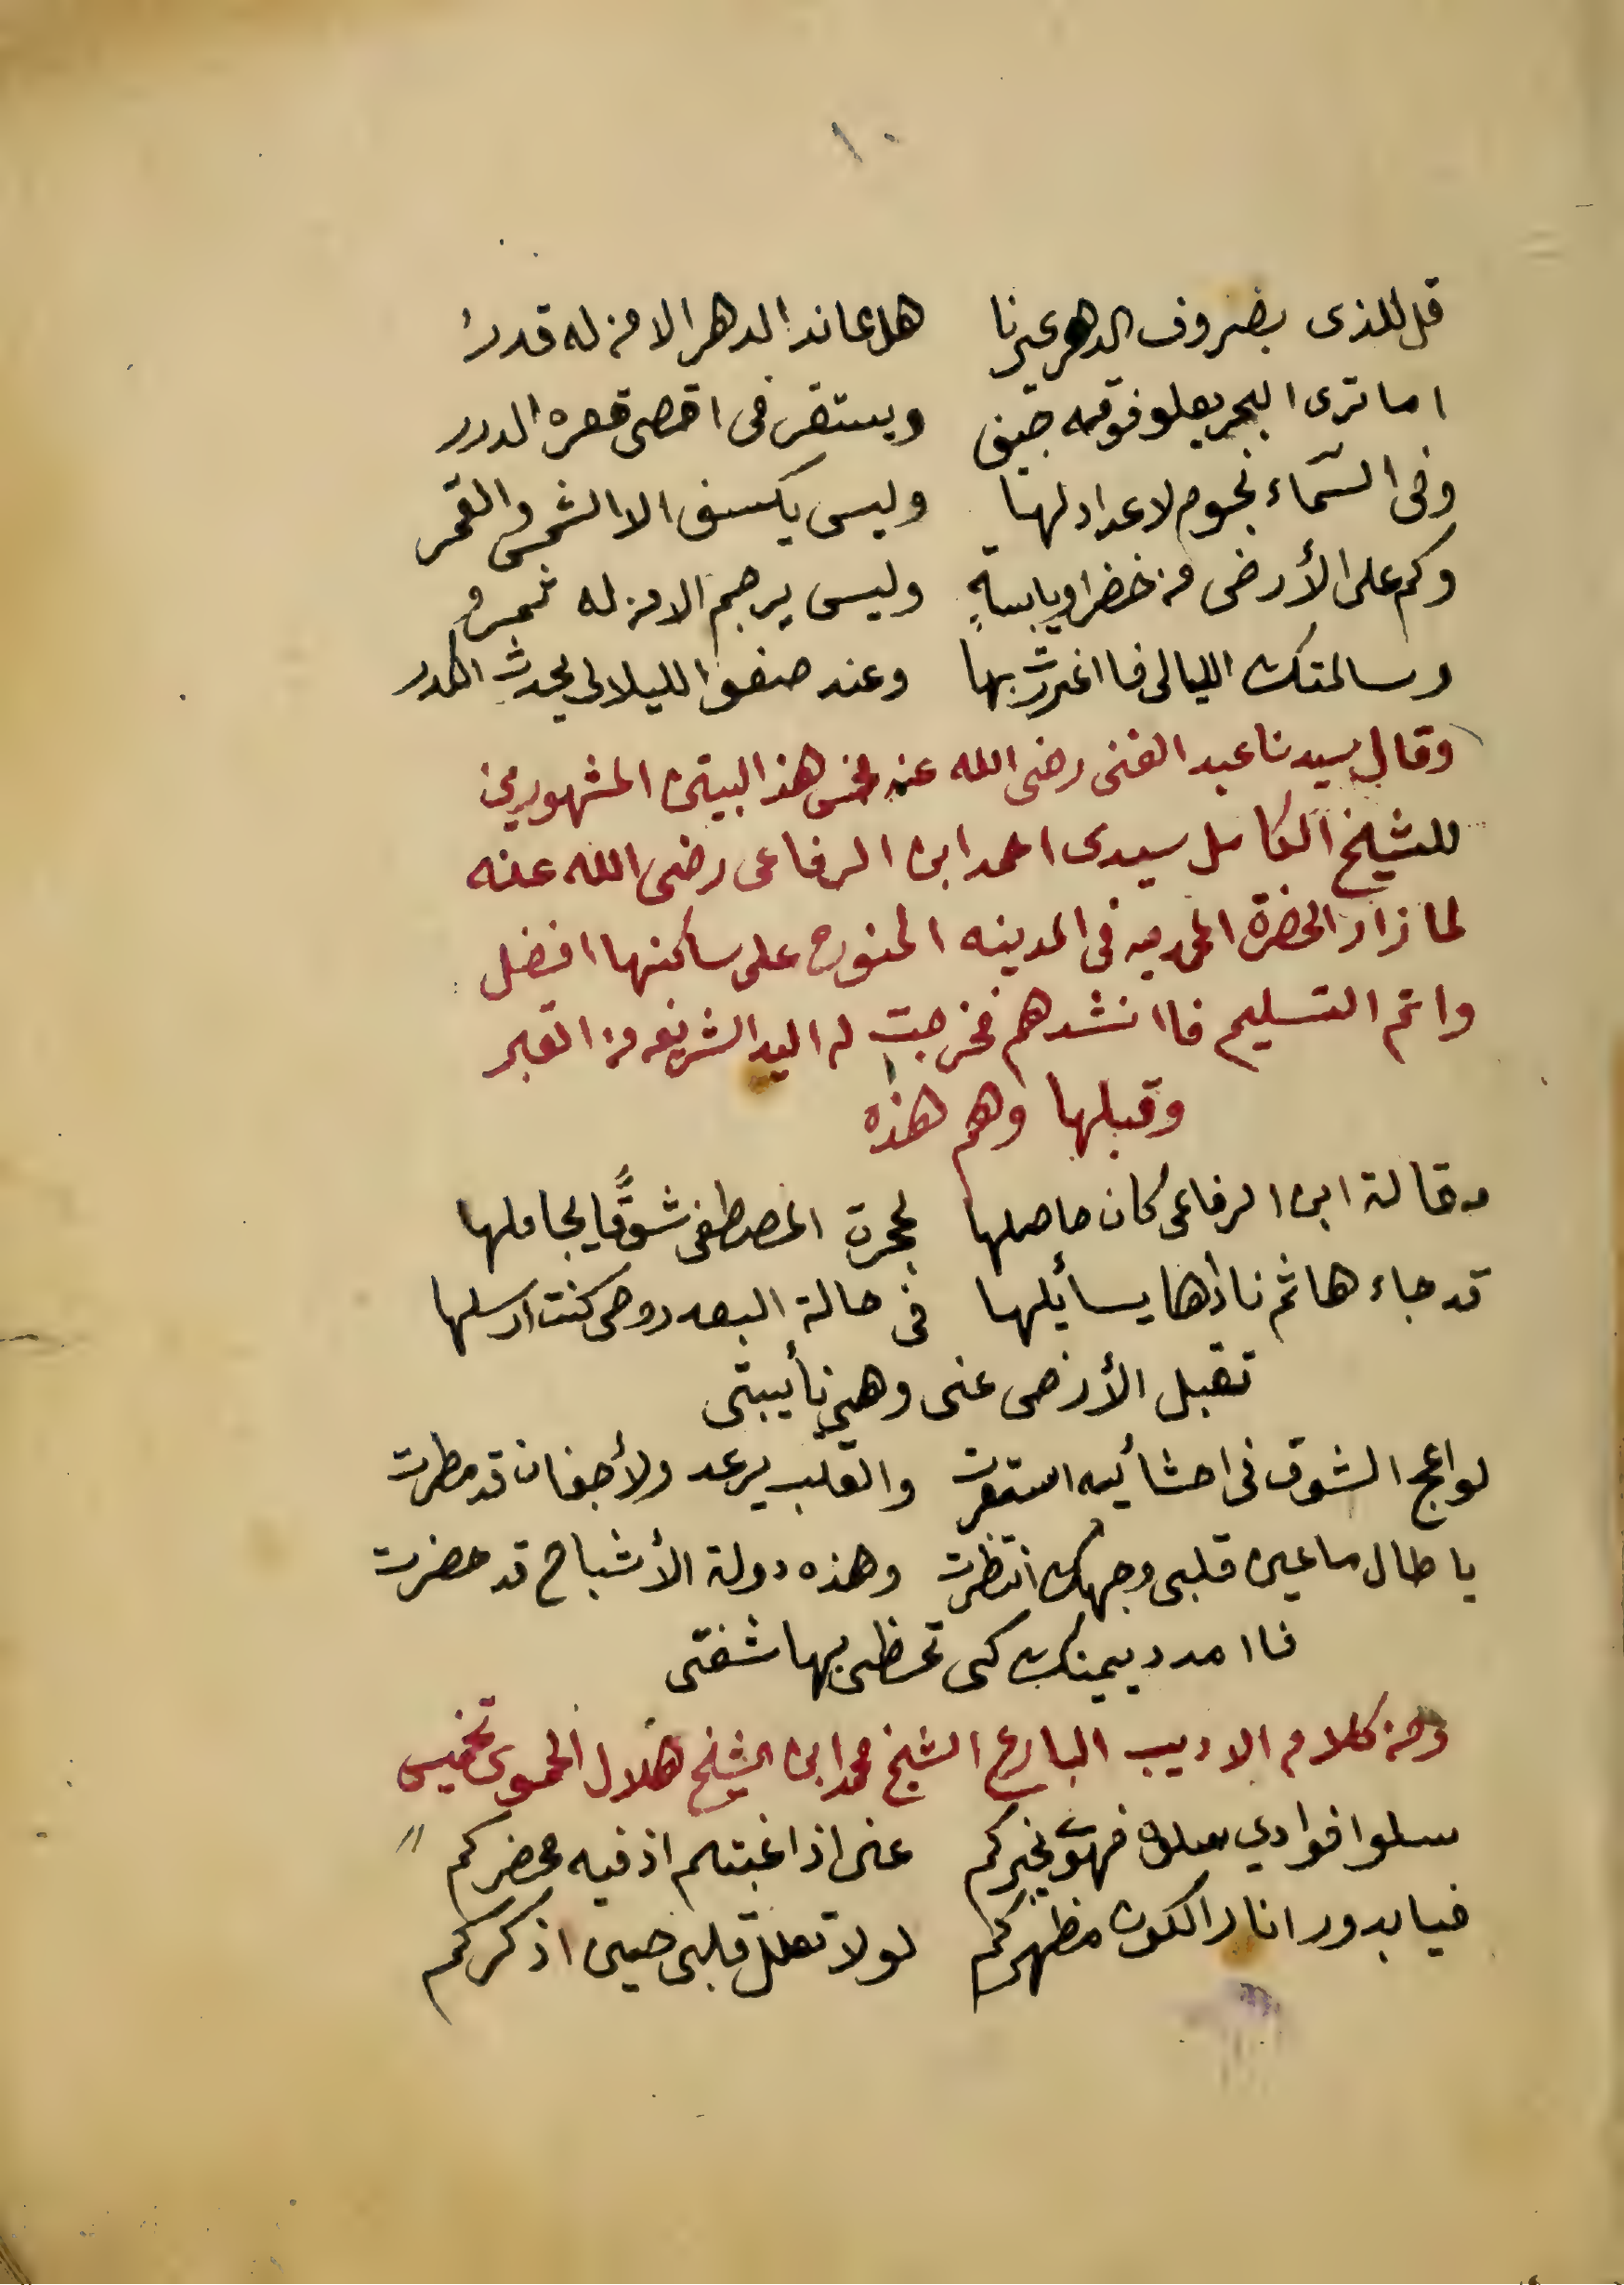 ١٠
قل للذى بضروف الدهر عيرنا هل عاند الدهر الا من له قدر
اما ترى البحر يعلو فوقه جيف ويستقر فى اقصى قعره الدرر
وفى السّماء نجوم لا عداد لها وليس يكسف الا الشمس والقمر
وكم على الأرض من خضرا ويابسةٍ وليس يرجم الا من له ثمر
وسالمتك الليالى فااغتررت بها وعند صفو الليلالى يحدث الكدر
وقال سيدنا عبد الغنى رضى الله عنه هذا البيتين المشهورين
للشيخ الكامل سيدى احمد ابن الرفاعى رضى الله عنه
لما زار الحضرة المحمديه فى المدينه المنوره على ساكنها افضل
واتم التسليم فاانشدهم فخرجت له اليد الشريفه من القبر
وقبلها وهم هذه
مقالة ابن الرفاعى كان حاصلها لحجرة المصطفى شوقًا يجاملها
قد جاءها ثم ناذها يسأيلها فى حالة البعد روحى كنت ارسلها
تقبل الأرض عنى وهي نأيبتى
لواعج الشوق فى احشأيه استعرت والقلب يرعد ولأجفان قد مطرت
يا طال ما عين قلبى وجهك انتظرت وهذه دولة الأشباح قد حضرت
فاامدد يمينك كى تحظى بها شفتى
ومن كلام الاديب البارع الشيخ محمد ابن الشيخ هلال الحموى تخميس
سلوا فوادي فهوَ يخبركم عنى اذا غبتم اذ فيه محضركم
فيا بدور انار الكون مظهركم لولا تعلل قلبى حين اذكركم